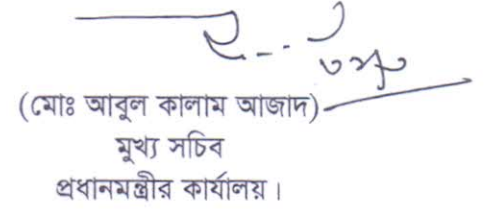 (মোঃ আবুল কালাম আজাদ)
মুখ্য সচিব
প্রধানমন্ত্রীর কার্যালয়।